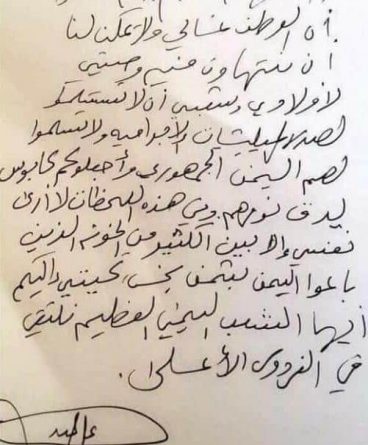 أن الوطن غالي ولا يمكن لنا
أن نتهاون فيه وصيتي
لأولادي وشعبي أن لا تستسلموا
لهذه المليشيات الإجرامية ولا تسلموا
لهم اليمن الجمهوري وأجعلوكم كابوس
يدق نومهم وفي هذه اللحظات لا أرى
نفسي إلا بين الكثير من الخونة الذين
باعوا اليمن بثمن بخس تحيتي إليكم
أيها الشعب اليمني العظيم نلتقي
في الفردوس الأعلى.